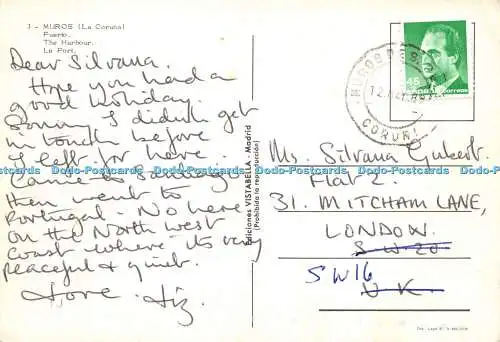 J - MUROS (La Coruña)
Puerto.
The Harbour.
Le Port.
Dear Silvana.
Hope you had a
good holiday.
Sorry I didn't get
in touch before
I left for here
Came to Santiago
then went to
Portugal. No here
on the North West
Coast where its very
peaceful & quiet.
Love Liz.
Ediciones VISTABELLA - Madrid
(Prohibida la reproducción)
45
correos
MUROS DE S
CORUÑA
Ms. Silvana Gubert
Flat 2
31. MITCHAM LANE,
LONDON.
S W 20
SW16
U K.
Dodo-Postcards Dodo-Postcards Dodo-Postcards Dodo-Postcards Dodo-Postcards